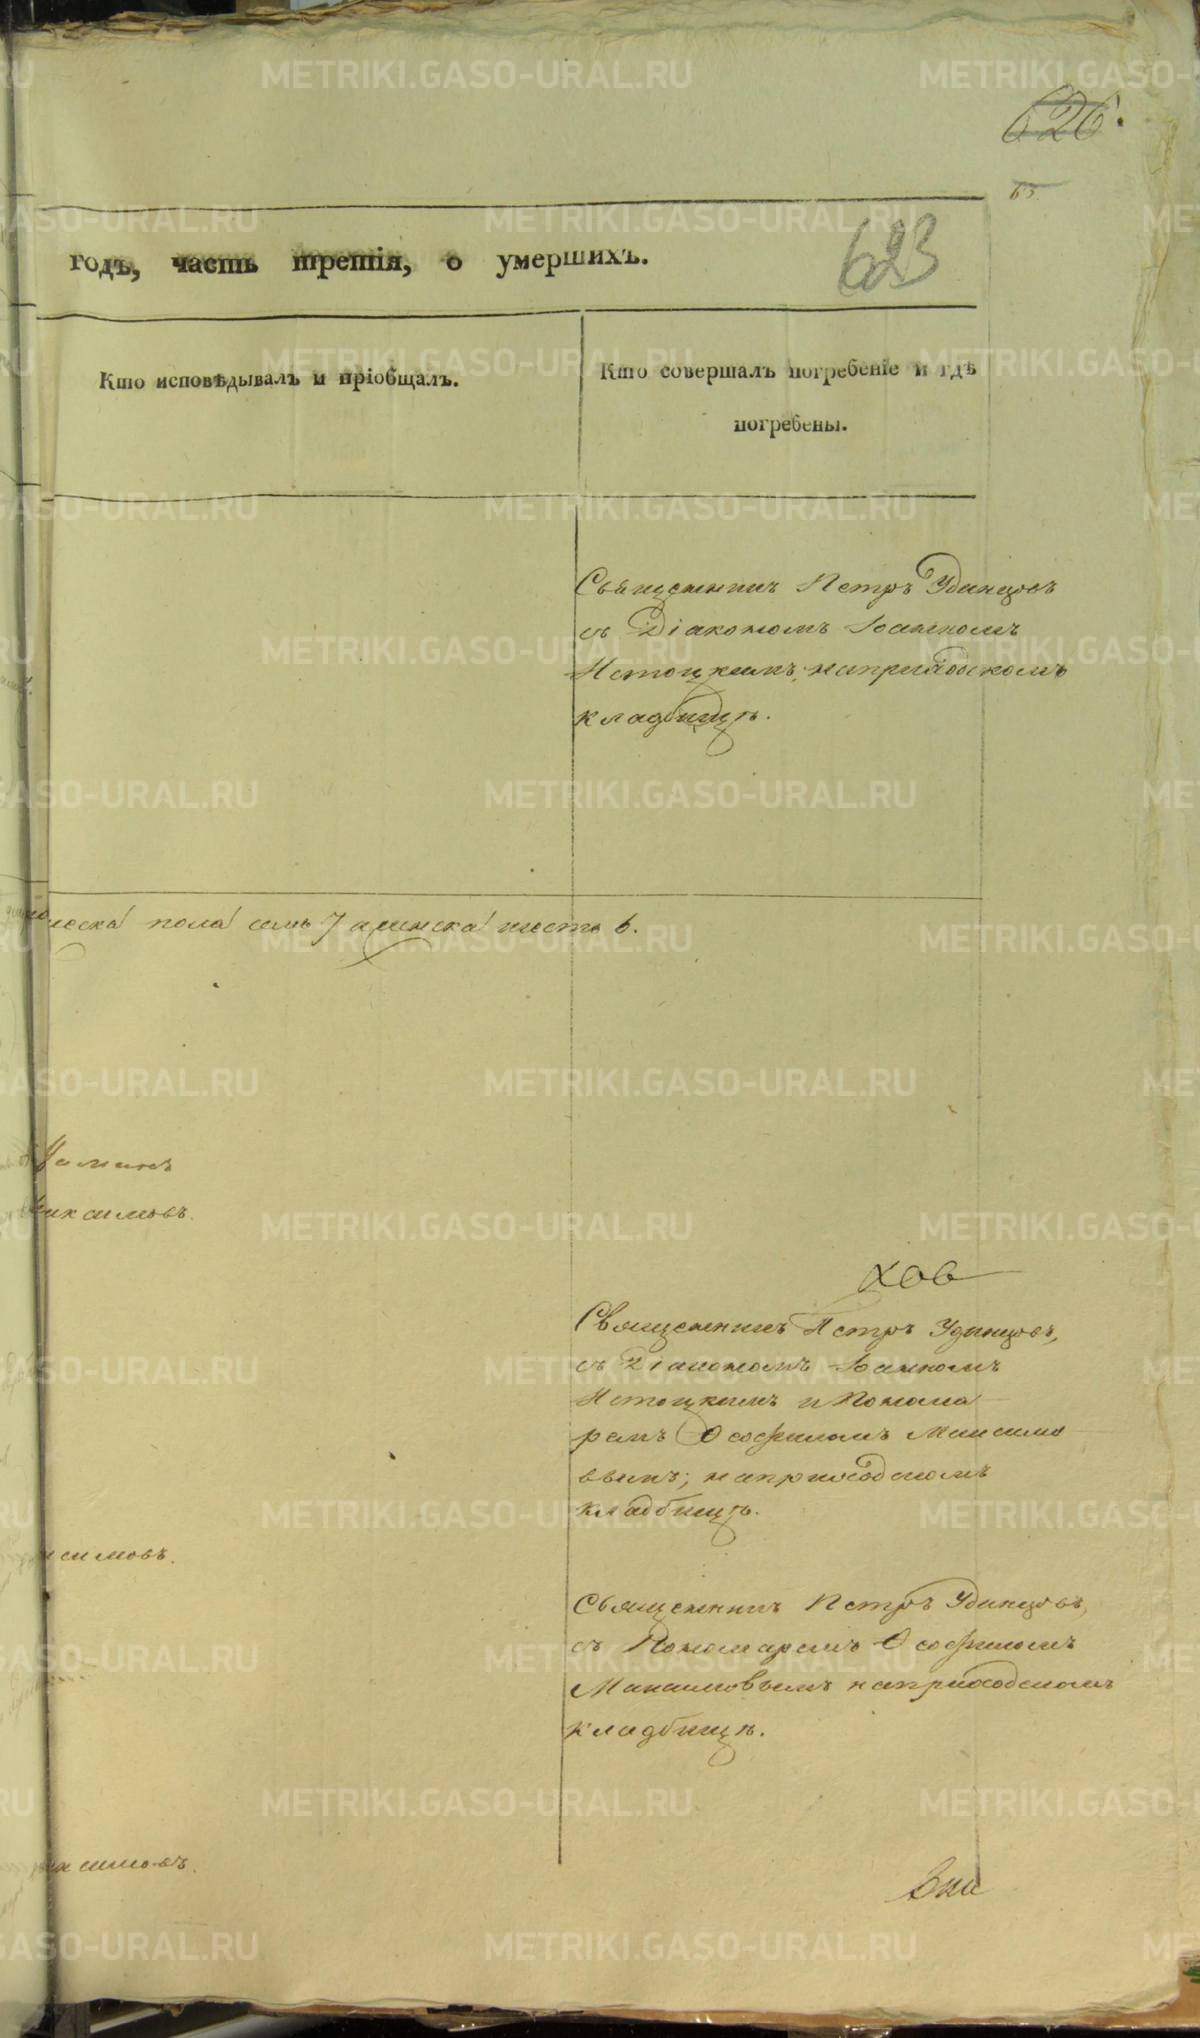 626.
63.
623
годъ, часть третія, о умершихъ.
Кто исповѣдывалъ и пріобщалъ.
Кто совершалъ погребеніе и гдѣ
погребены.
Священникъ Петръ Удинцовъ
съ Діакономъ Іоанномъ
Истоцкимъ; на приходскомъ
кладбищѣ.
ческа пола семь 7 а женска шесть 6.
Максимовъ.
хов
Священникъ Петръ Удинцовъ,
съ Діакономъ Іоанномъ
Истоцкимъ и Понома
ремъ Ѳеофиломъ Максимо
вымъ; на приходскомъ
кладбищѣ.
ксимовъ.
Священникъ Петръ Удинцовъ,
съ Пономаремъ Ѳеофиломъ
Максимовымъ на приходскомъ
кладбищѣ.
ксимовъ.
METRIKI.GASO-URAL.RU